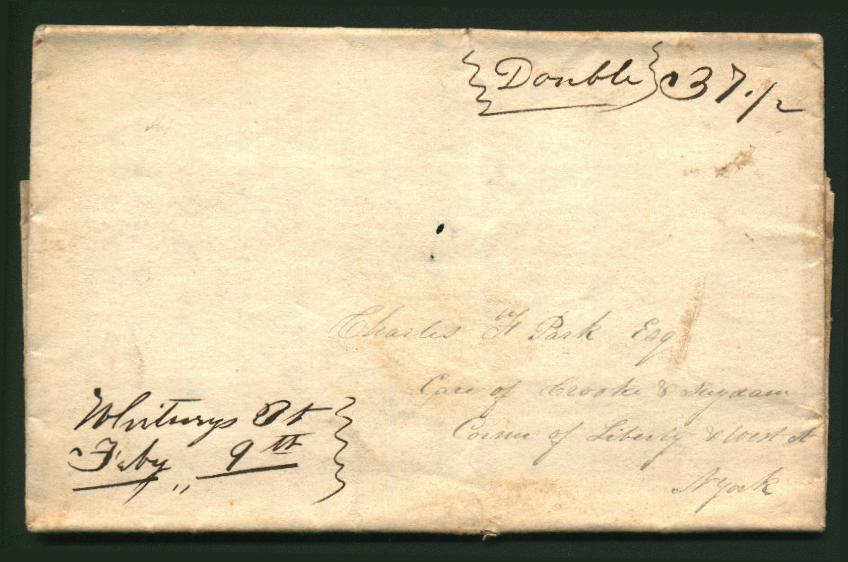 Double 37.1/2
Charles F Park Esq
Care of Crooke & Suydam
Corner of Liberty & West St
NYork
Whitneys Pt
Feby 9th